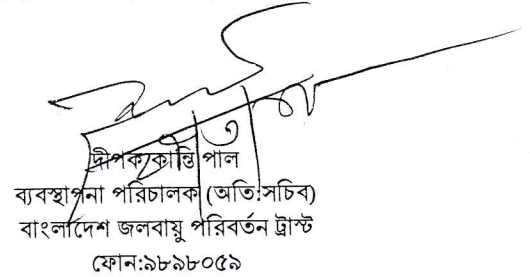 দীপক কান্তি পাল
ব্যবস্থাপনা পরিচালক (অতিঃসচিব)
বাংলাদেশ জলবায়ু পরিবর্তন ট্রাস্ট
ফোন:৯৮৯৮০৫৯